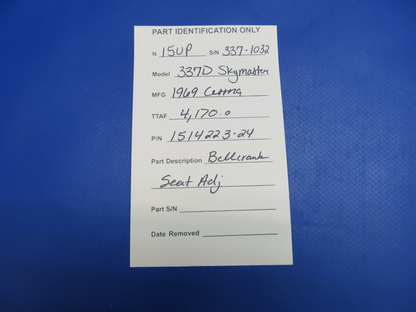 PART IDENTIFICATION ONLY
N 15UP S/N 337-1032
Model 337D Skymaster
MFG 1969 Cessna
TTAF 4,170.0
P/N 1514223-24
Part Description Bellcrank
Seat Adj
Part S/N
Date Removed